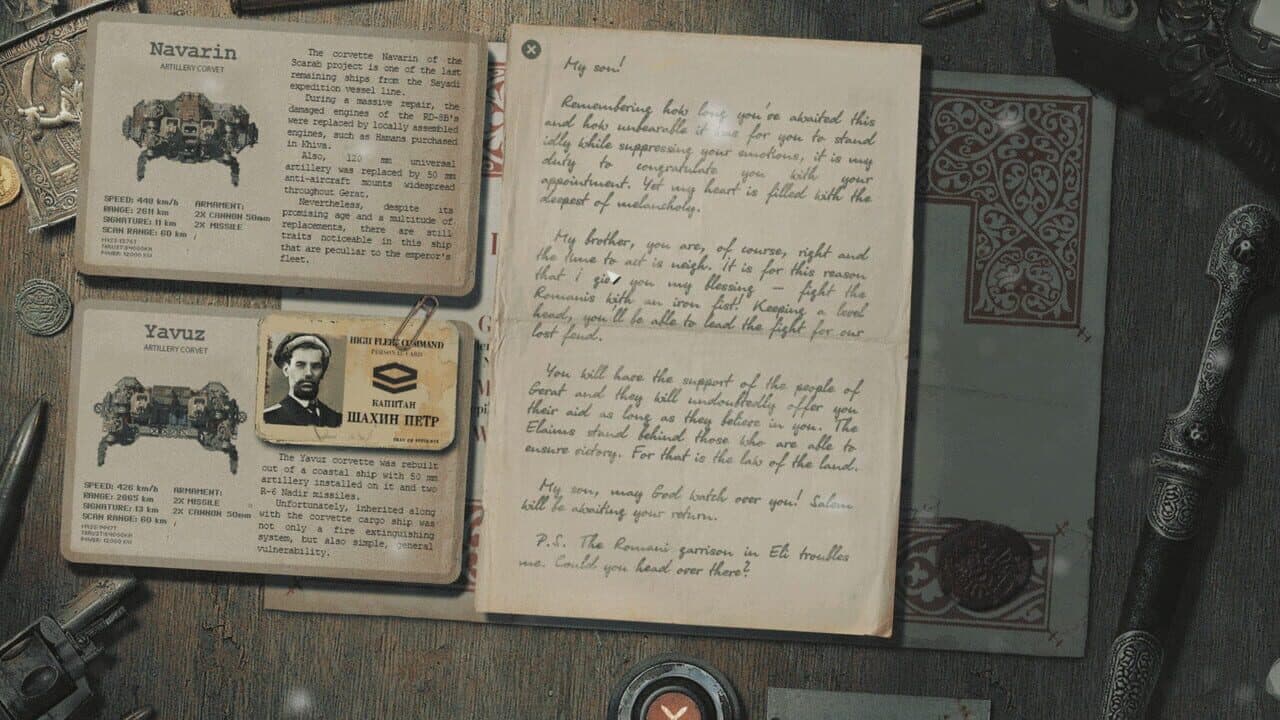 Navarin
ARTILLERY CORVET
SPEED: 440 km/h
RANGE: 2611 km
SIGNATURE: 11 km
SCAN RANGE: 60 km
ARMAMENT:
2X CANNON 50mm
2X MISSILE
The corvette Navarin of the
Scarab project is one of the last
remaining ships from the Sayadi
expedition vessel line.
During a massive repair, the
damaged engines of the RD-8B's
were replaced by locally assembled
engines, such as Hamans purchased
in Khiva.
Also, 120 mm universal
artillery was replaced by 50 mm
anti-aircraft mounts widespread
throughout Gerat.
Nevertheless, despite its
promising age and a multitude of
replacements, there are still
traits noticeable in this ship
that are peculiar to the emperor's
fleet.
Yavuz
ARTILLERY CORVET
SPEED: 426 km/h
RANGE: 2665 km
SIGNATURE: 13 km
SCAN RANGE: 60 km
ARMAMENT:
2X MISSILE
2X CANNON 50mm
HIGH FLEET COMMAND
PERSONAL CARD
КАПИТАН
ШАХИН ПЕТР
The Yavuz corvette was rebuilt
out of a coastal ship with 50 mm
artillery installed on it and two
R-6 Nadir missiles.
Unfortunately, inherited along
with the corvette cargo ship was
not only a fire extinguishing
system, but also simple, general
vulnerability.
My son!
Remembering how long you've awaited this
and how unbearable it was for you to stand
idly while suppressing your emotions, it is my
duty to congratulate you with your
appointment. Yet my heart is filled with the
deepest of melancholy.
My brother, you are, of course, right and
the time to act is neigh. It is for this reason
that I give you my blessing — fight the
Romanis with an iron fist! Keeping a level
head, you'll be able to lead the fight for our
lost feud.
You will have the support of the people of
Gerat and they will undoubtedly offer you
their aid as long as they believe in you. The
Elaims stand behind those who are able to
ensure victory. For that is the law of the land.
My son, may God watch over you! Salem
will be awaiting your return.
P.S. The Romani garrison in Eli troubles
me. Could you head over there?